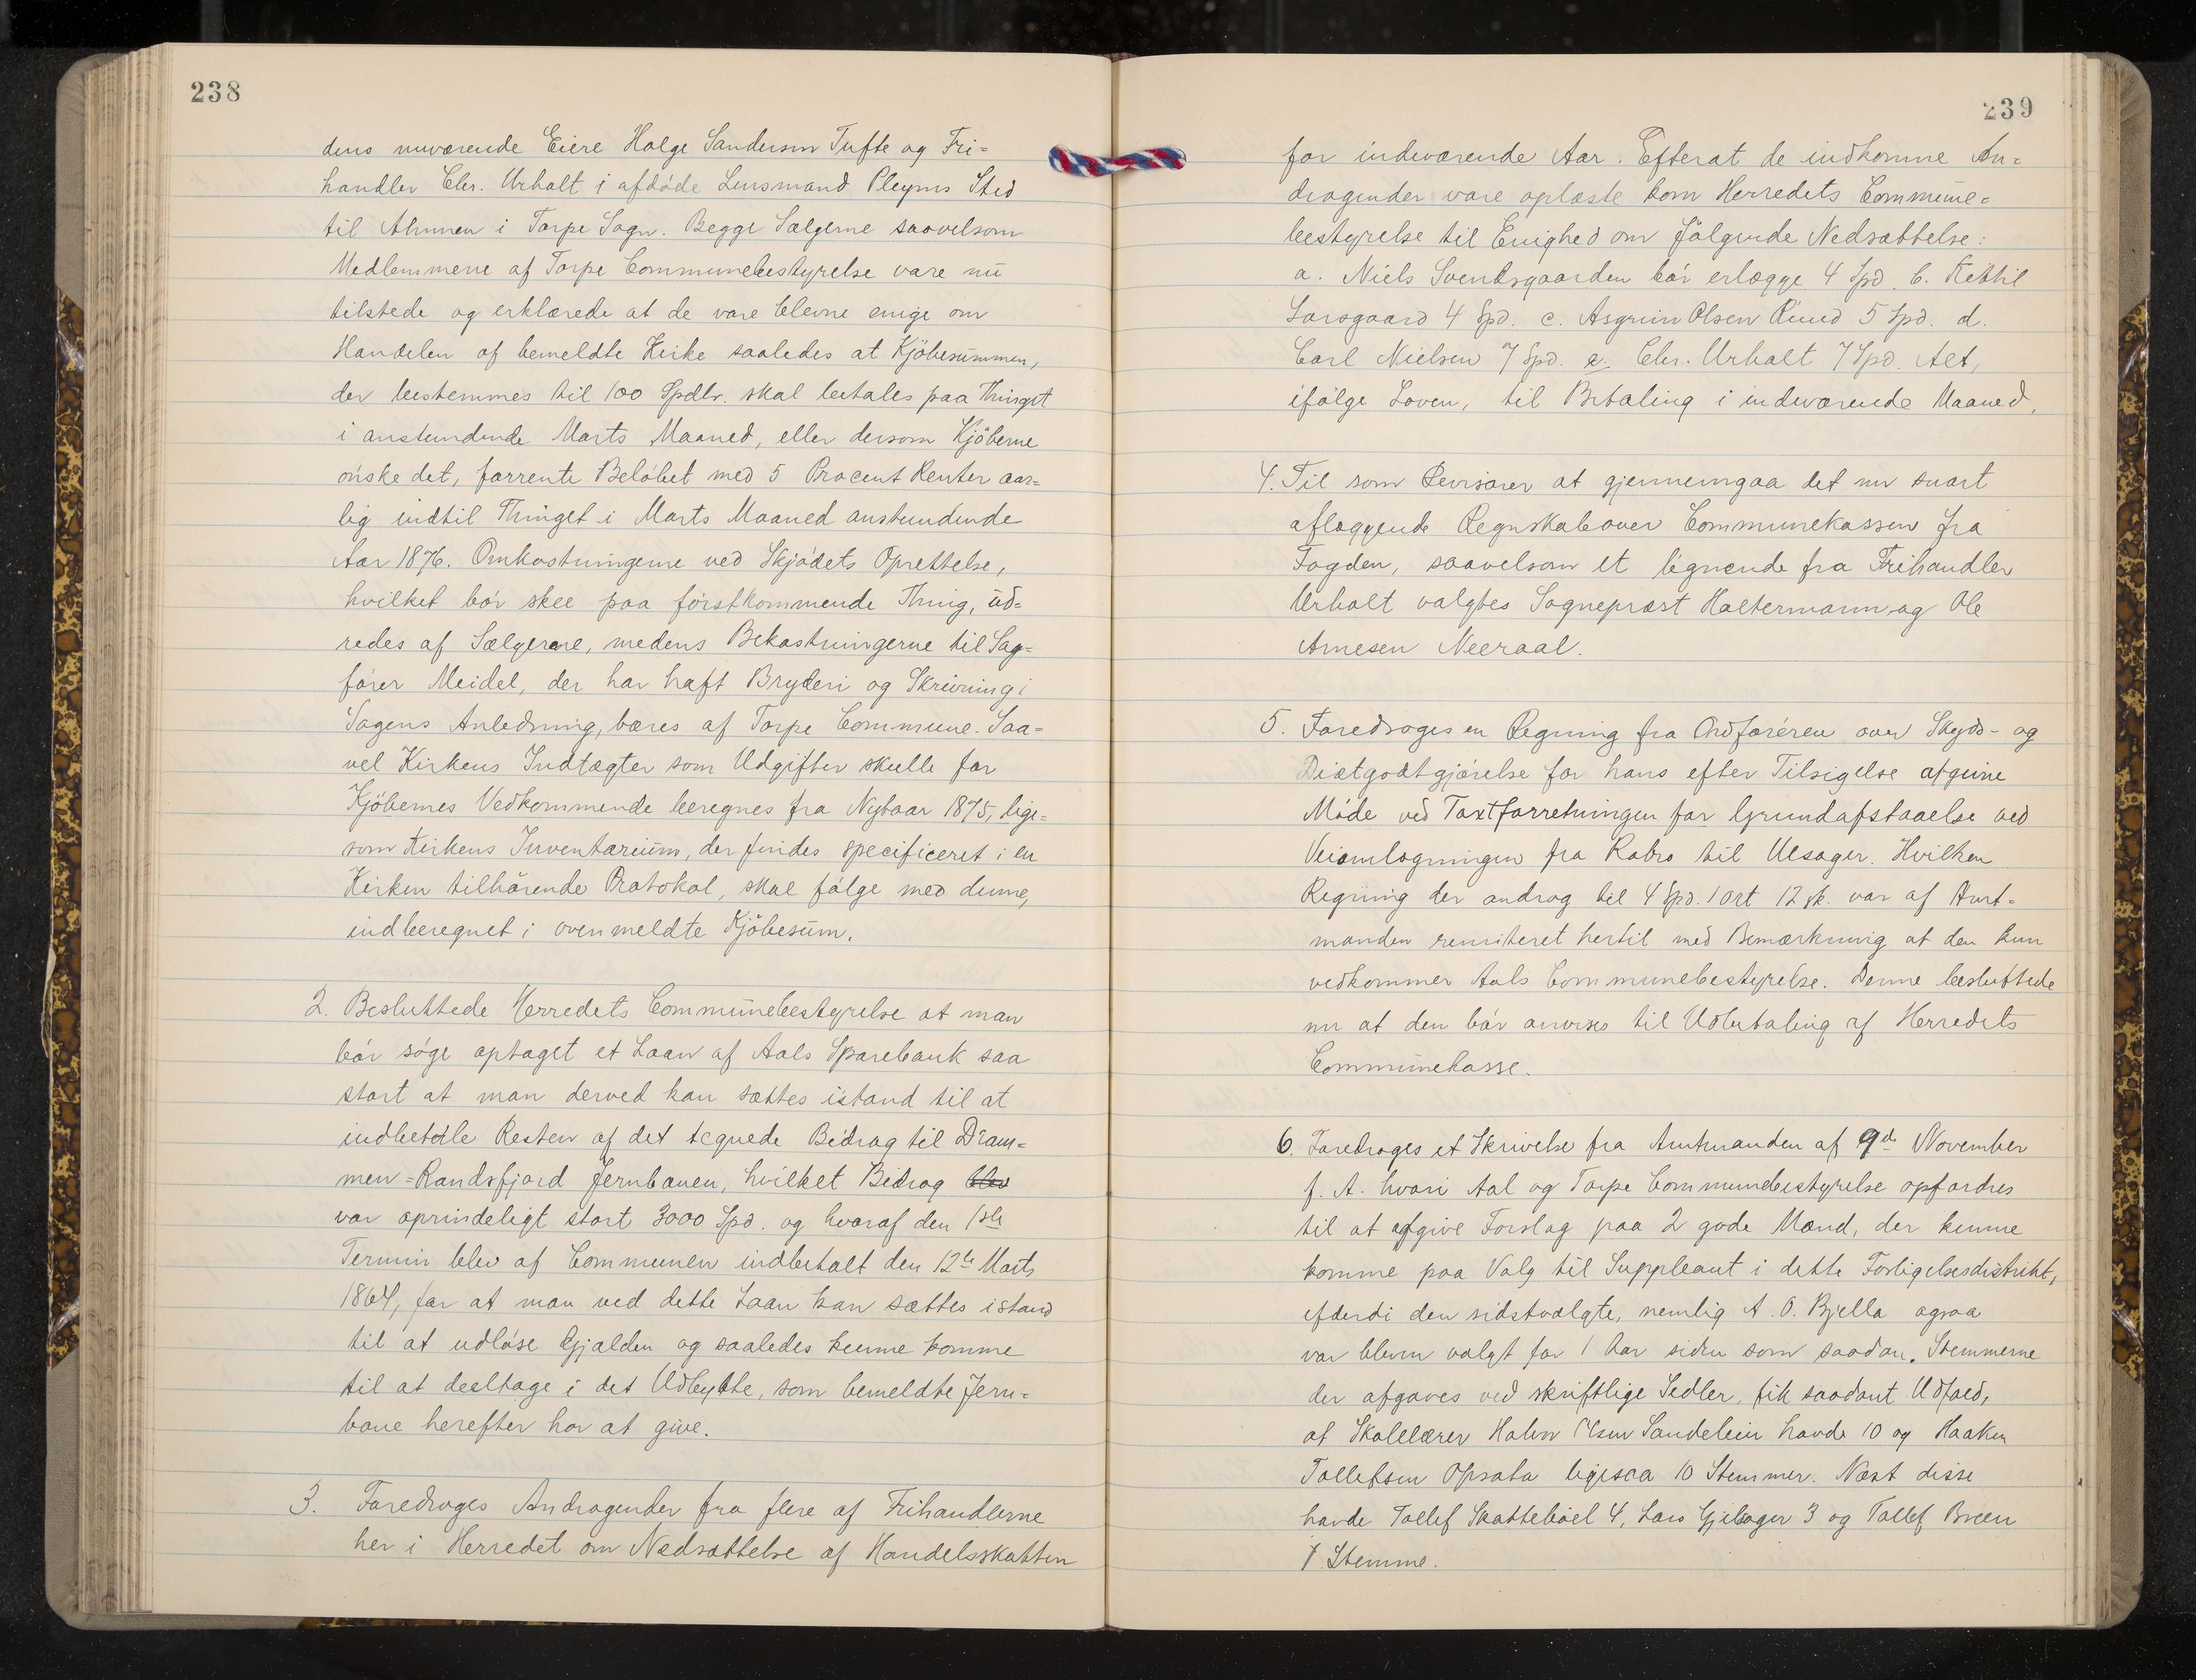 238
dens nuværende Eiere Holge Sanderson Tufte og Fri=
handler Chr. Urhalt i afdöde Lensmand Pleyms Sted
til Almuen i Torpe Sogn. Begge Sælgerne saavelsom
Medlemmene af Torpe Communebestyrelse vare nu
tilstede og erklærede at de vare blevne enige om
Handelen af bemeldte Kirke saaledes at Kjöbesummen,
der bestemmes til 100 Spdlr. skal betales paa Thinget
i anstundende Marts Maaned, eller dersom Kjöberne
önske det, forrente Belöbet med 5 Procent Renter aar=
lig indtil Thinget i Marts Maaned anstundende
Aar 1876. Omkostningerne ved Skjödets Oprettelse,
hvilket bör skee paa förstkommende Thing, ud=
redes af Sælgerne, medens Bekostningerne til Sag=
förer Meidel, der har haft Bryderi og Skrivning i
Sagens Anledning, bæres af Torpe Commune. Saa=
vel Kirkens Indtægter som Udgifter skulle for
Kjöbernes Vedkommende beregnes fra Nytaar 1875, lige=
som Kirkens Inventarium, der findes specificeret i en
Kirken tilhörende Protokol, skal fölge med denne,
indberegnet i ovenmeldte Kjöbesum.
2. Besluttede Herredets Communebestyrelse at man
bör söge optaget et Laan af Aals Sparebank saa
stort at man derved kan sættes istand til at
indbetale Resten af det tegnede Bidrag til Dram=
men=Randsfjord Jernbanen, hvilket Bidrag blev
var oprindeligt stort 3000 Spd. og hvoraf den 1ste
Termin blev af Communen indbetalt den 12te Marts
1864, for at man ved dette Laan kan sættes istand
til at udlöse Gjælden og saaledes kunne komme
til at deeltage i det Udbytte, som bemeldte Jern=
bane herefter har at give.
3. Foredroges Andragender fra flere af Frihandlerne
her i Herredet om Nedsættelse af Handelsskatten
239
for indeværende Aar. Efterat de indkomne An=
dragender vare oplæste kom Herredets Commune=
bestyrelse til Enighed om fölgende Nedsættelse:
a. Niels Svendsgaarden bör erlægge 4 Spd. b. Kettil
Larsgaard 4 Spd. c. Asgrim Olsen Ruud 5 Spd. d.
Carl Nielsen 7 Spd. e. Chr. Urhalt 7 Spd. Alt,
ifölge Loven, til Betaling i indeværende Maaned.
4. Til som Revisorer at gjennemgaa det nu snart
aflæggende Regnskab over Communekassen fra
Fogden, saavelsom et lignende fra Frihandler
Urhalt valgtes Sognepræst Holtermann og Ole
Arnesen Neeraal.
5. Foredroges en Regning fra Ordföreren over Skyds- og
Diætgodtgjörelse for hans efter Tilsigelse afgivne
Möde ved Taxtforretningen for Grundafstaaelse ved
Veiomlægningen fra Kabro til Ulsager. Hvilken
Regning der androg til 4 Spd. 1 ort 12 sk. var af Amt=
manden remiteret hertil med Bemærkning at den kun
vedkommer Aals Communebestyrelse. Denne besluttede
nu at den bör anvises til Udbetaling af Herredets
Communekasse.
6. Foredroges et Skrivelse fra Amtmanden af 9de November
f. A. hvori Aal og Torpe Communebestyrelse opfordres
til at afgive Forslag paa 2 gode Mænd, der kunne
komme paa Valg til Suppleant i dette Forligelsesdistrikt,
efterdi den sidstvalgte, nemlig A. O. Bjella ogsaa
var bleven valgt for 1 Aar siden som saadan. Stemmerne
der afgaves ved skriftlige Sedler, fik saadant Udfald,
at Skolelærer Halvor Olsen Sandelein havde 10 og Haaken
Tollefsen Opsata ligesaa 10 Stemmer. Næst disse
havde Tollef Skatteböel 4, Lars Gjelsager 3 og Tollef Breen
1 Stemme.